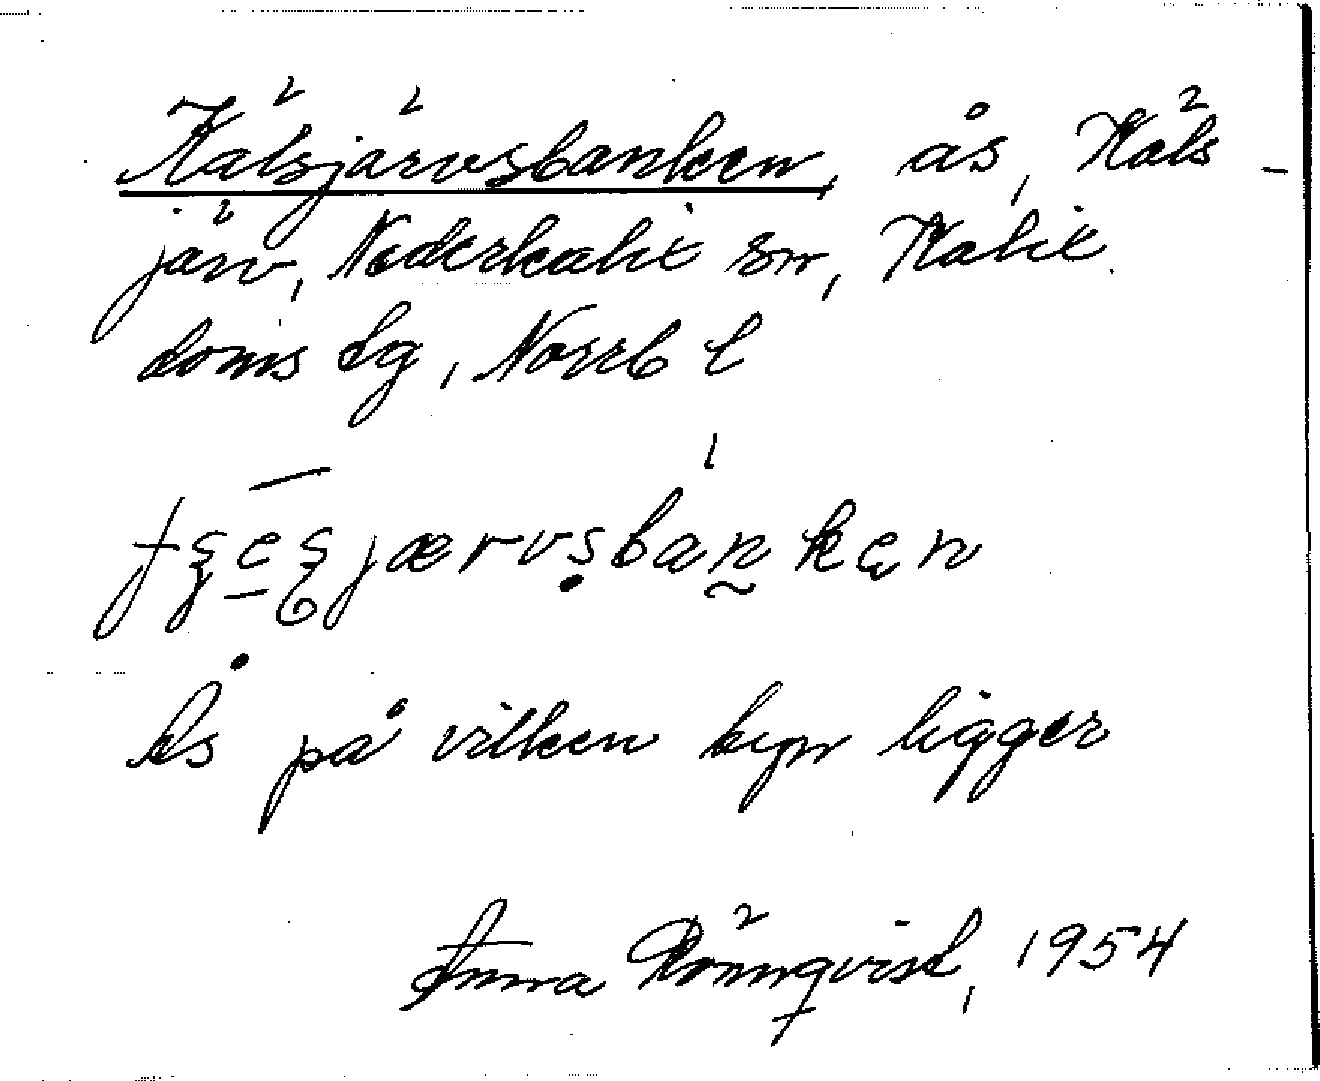 Kälsjärvsbanken, ås, Käls-
järv, Nederkalix sn, Kalix
doms lg, Norrb l
Ås på vilken byn ligger
Anna Rönnqvist, 1954